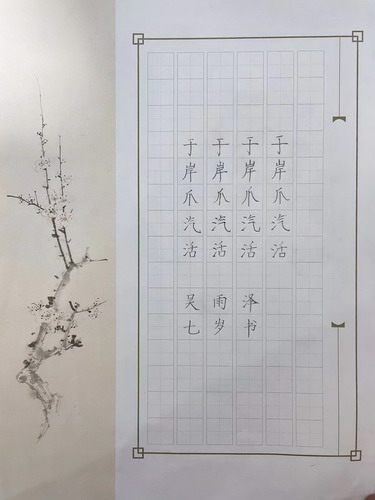 于于于于
岸岸岸岸
爪爪爪爪
汽汽汽汽
活活活活
吴雨泽
七岁书